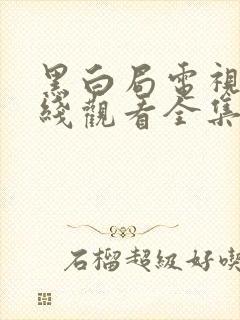 黑白局電視
綫觀看全集
石榴超級好喫